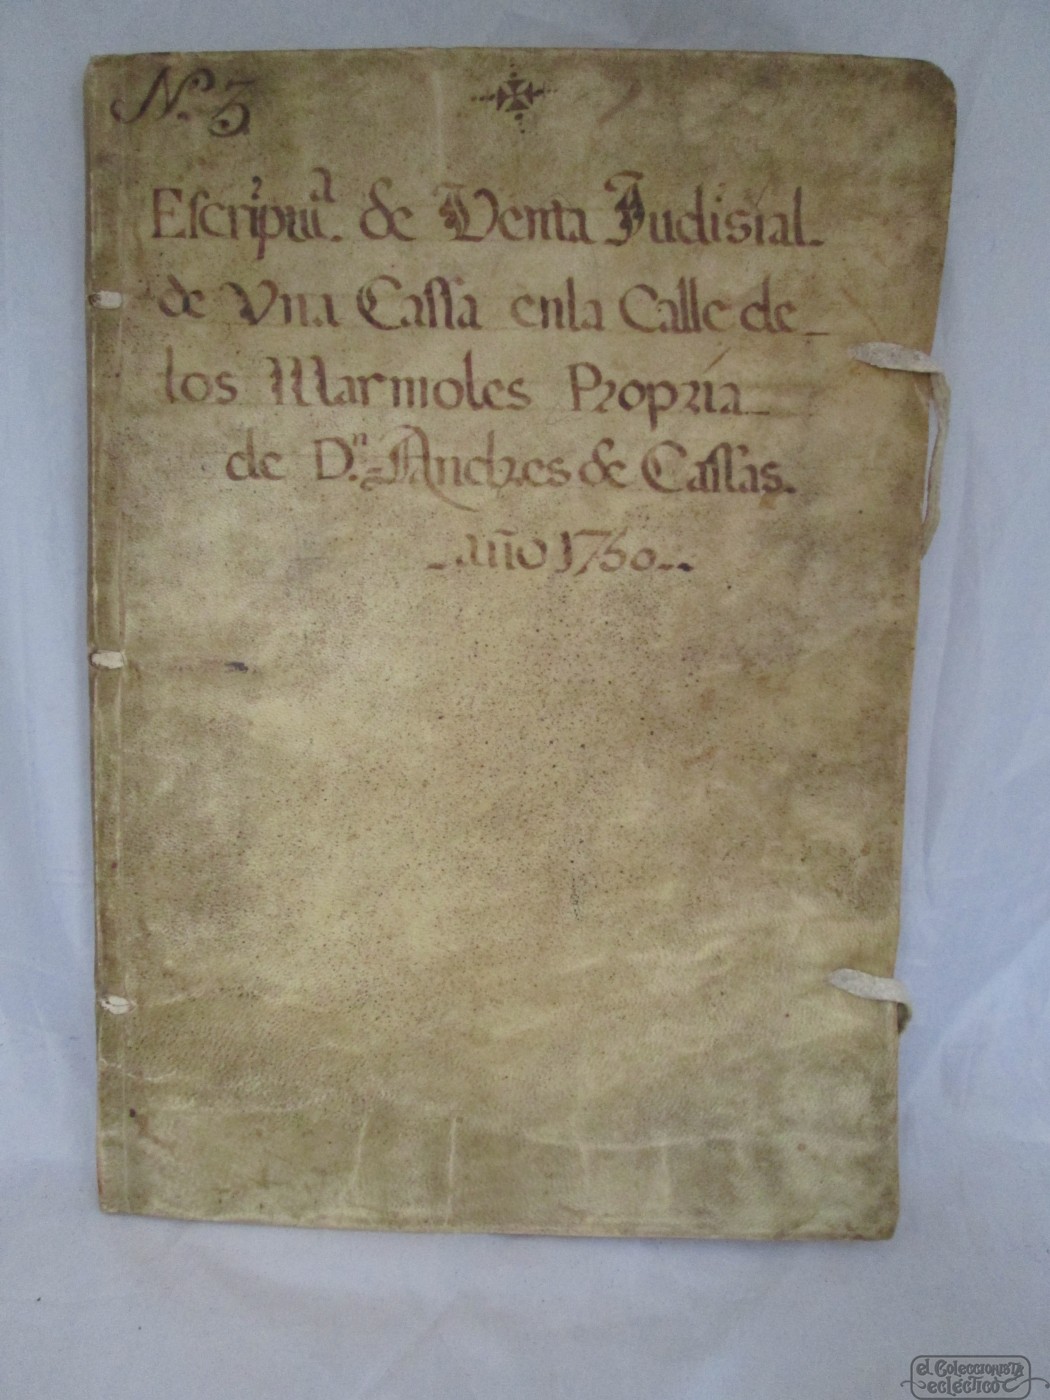 N. 3
Escriptu.ª de Venta Judisial
de Vna Cassa enla Calle de
los Marmoles Propria
de D.ⁿ Andres de Cassas.
año 1760
el Coleccionista
ecléctico